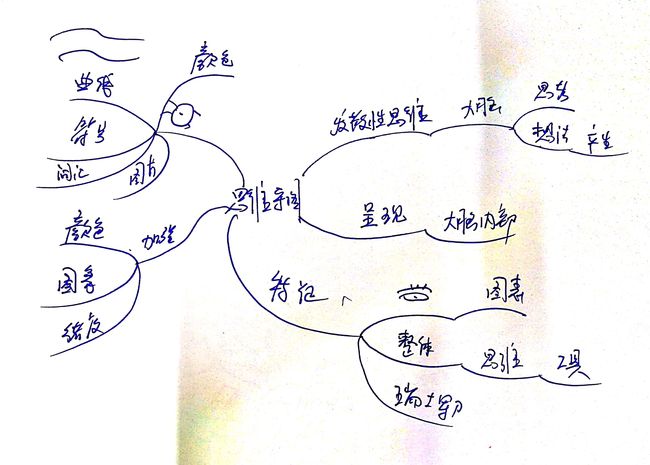 颜色
曲线
符号
词汇
图片
思维导图
发散性思维
大脑
思考
想法
产生
呈现
大脑内部
加强
颜色
图像
维度
特征
图表
整体
思维
工具
瑞士军刀